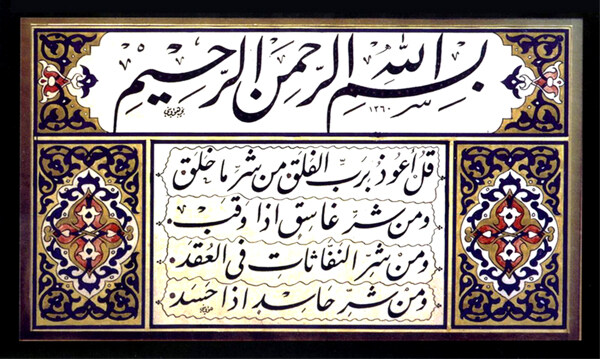 بسم الله الرحمن الرحيم
١٣٦٠
قل أعوذ برب الفلق من شر ما خلق
ومن شر غاسق اذا وقب
ومن شر النفاثات في العقد
ومن شر حاسد اذا حسد